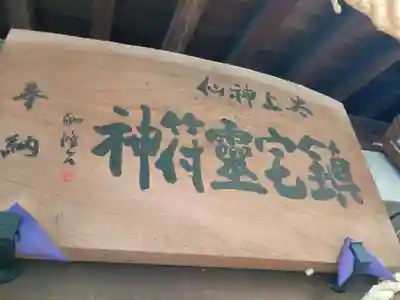 太上神仙
鎮宅靈符神
奉納